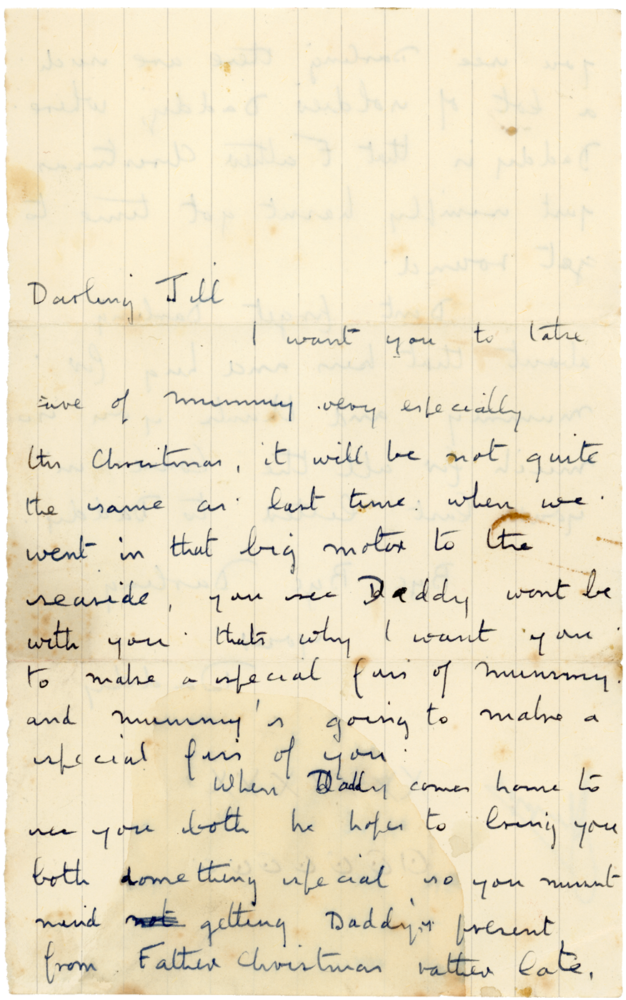 Darling Jill
I want you to take
care of mummy very especially
this Christmas, it will be not quite
the same as last time when we
went in that big motor to the
seaside, you see Daddy wont be
with you thats why I want you
to make a special fuss of mummy.
and mummy's going to make a
special fuss of you.
When Daddy comes home to
see you both he hopes to bring you
both something special so you musnt
mind not getting Daddy's present
from Father Christmas rather late.